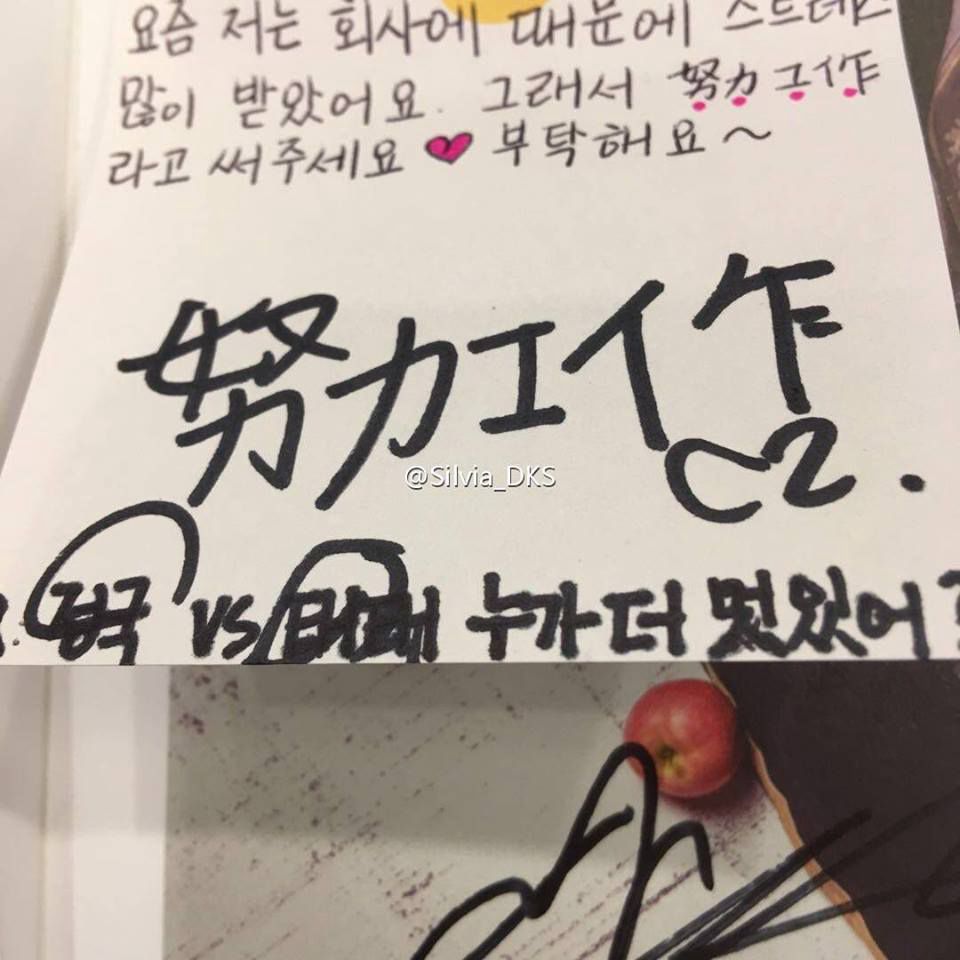 요즘 저는 회사에 때문에 스트레스
많이 받았어요. 그래서 努力工作
라고 써주세요 부탁해요~
努力工作
@Silvia_DKS
정국 vs 누가 더 멋있어?